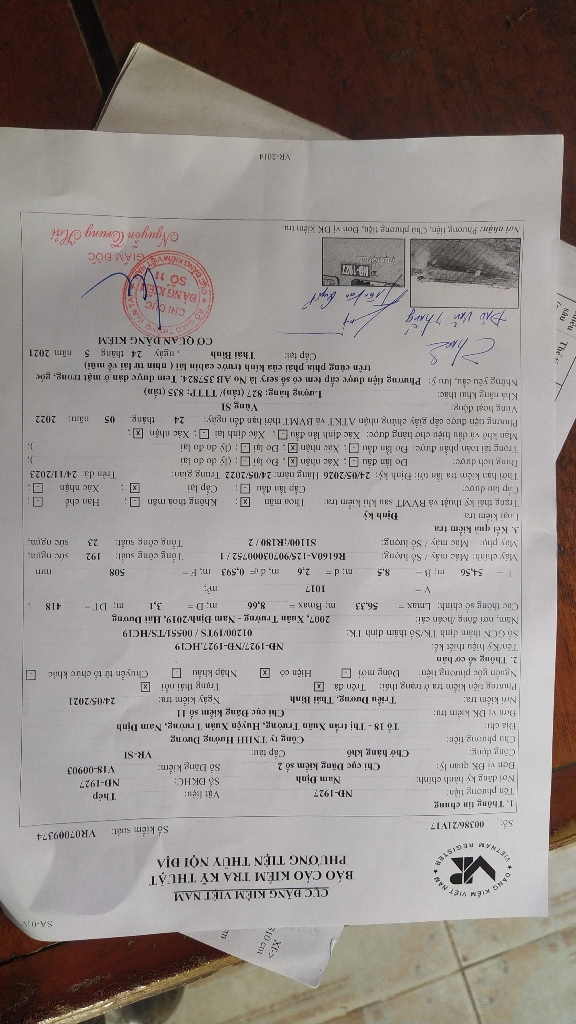 SA-01V
ĐĂNG KIỂM VIỆT NAM
VR
VIETNAM REGISTER
CỤC ĐĂNG KIỂM VIỆT NAM
BÁO CÁO KIỂM TRA KỸ THUẬT
PHƯƠNG TIỆN THỦY NỘI ĐỊA
Số: 00386/21V17 Số kiểm soát: VR07009374
1. Thông tin chung
Tên phương tiện: NĐ-1927 Vật liệu: Thép
Nơi đăng ký hành chính: Nam Định Số ĐKHC: NĐ-1927
Đơn vị ĐK quản lý: Chi cục Đăng kiểm số 2 Số Đăng kiểm: V18-00903
Công dụng: Chở hàng khô Cấp tàu: VR-SI
Chủ phương tiện: Công ty TNHH Hướng Dương
Địa chỉ: Tổ 18 - Thị trấn Xuân Trường, Huyện Xuân Trường, Nam Định
Đơn vị ĐK kiểm tra: Chi cục Đăng kiểm số 11
Nơi kiểm tra: Triều Dương, Thái Bình Ngày kiểm tra: 24/05/2021
Phương tiện kiểm tra ở trạng thái: Trên đà x Trạng thái nổi x
Nguồn gốc phương tiện: Đóng mới - Hiện có x Nhập khẩu - Chuyển từ tổ chức khác -
2. Thông số cơ bản
Tên/Ký hiệu thiết kế: NĐ-1927/NĐ-1927.HC19
Số GCN thẩm định TK/Số thẩm định TK: 01200/19TS / 00551/TS/HC19
Năm, nơi đóng/hoán cải: 2007, Xuân Trường - Nam Định/2019, Hải Dương
Các thông số chính: Lmax = 56,33 m; Bmax = 8,66 m; D = 3,1 m; DT = 418 ;
V = 1017 m³;
L = 54,56 m; B = 8,5 m; d = 2,6 m, 0,593 m, F = 508 mm
Máy chính: Mác máy / Số lượng: R6160A-125/9070500752 / 1 Tổng công suất: 192 sức ngựa;
Máy phụ Mác máy / Số lượng: S1100/R180 / 2 Tổng công suất: 23 sức ngựa;
3. Kết quả kiểm tra
Loại kiểm tra Định kỳ
Trạng thái kỹ thuật và BVMT sau khi kiểm tra: Thỏa mãn x Không thỏa mãn - Hạn chế - ;
Cấp tàu được: Cấp lần đầu - ; Cấp lại x Xác nhận - ;
Thời hạn kiểm tra lần tới: Định kỳ: 24/05/2026 Hàng năm: 24/05/2022 Trung gian: Trên đà: 24/11/2023
Dung tích được: Đo lần đầu - ; Xác nhận x Đo lại - ; (lý do đo lại );
Trọng tải toàn phần được: Đo lần đầu - ; Xác nhận x Đo lại - ; (lý do đo lại );
Mạn khô và dấu hiệu chở hàng được: Xác định lần đầu - ; Xác định lại - ; Xác nhận x
Phương tiện được cấp giấy chứng nhận ATKT và BVMT thời hạn đến ngày: 24 tháng: 05 năm: 2022
Vùng hoạt động: Vùng SI
Khả năng khai thác: Lượng hàng: 827 (tấn)/ TTTP: 835 (tấn)
Những yêu cầu, lưu ý: Phương tiện được cấp tem có số sery là No AB 357824. Tem được dán ở mặt trong, góc
trên cùng phía phải của kính trước cabin lái ( nhìn từ lái về mũi)
Cấp tại: Thái Bình , ngày 24 tháng 5 năm 2021
CƠ QUAN ĐĂNG KIỂM
CHI CỤC
ĐĂNG KIỂM
SỐ 11
GIÁM ĐỐC
Nguyễn Trung Hải
NĐ-1927
Nơi nhận: Phương tiện, Chủ phương tiện, Đơn vị ĐK kiểm tra.
VR-2014
310 cm